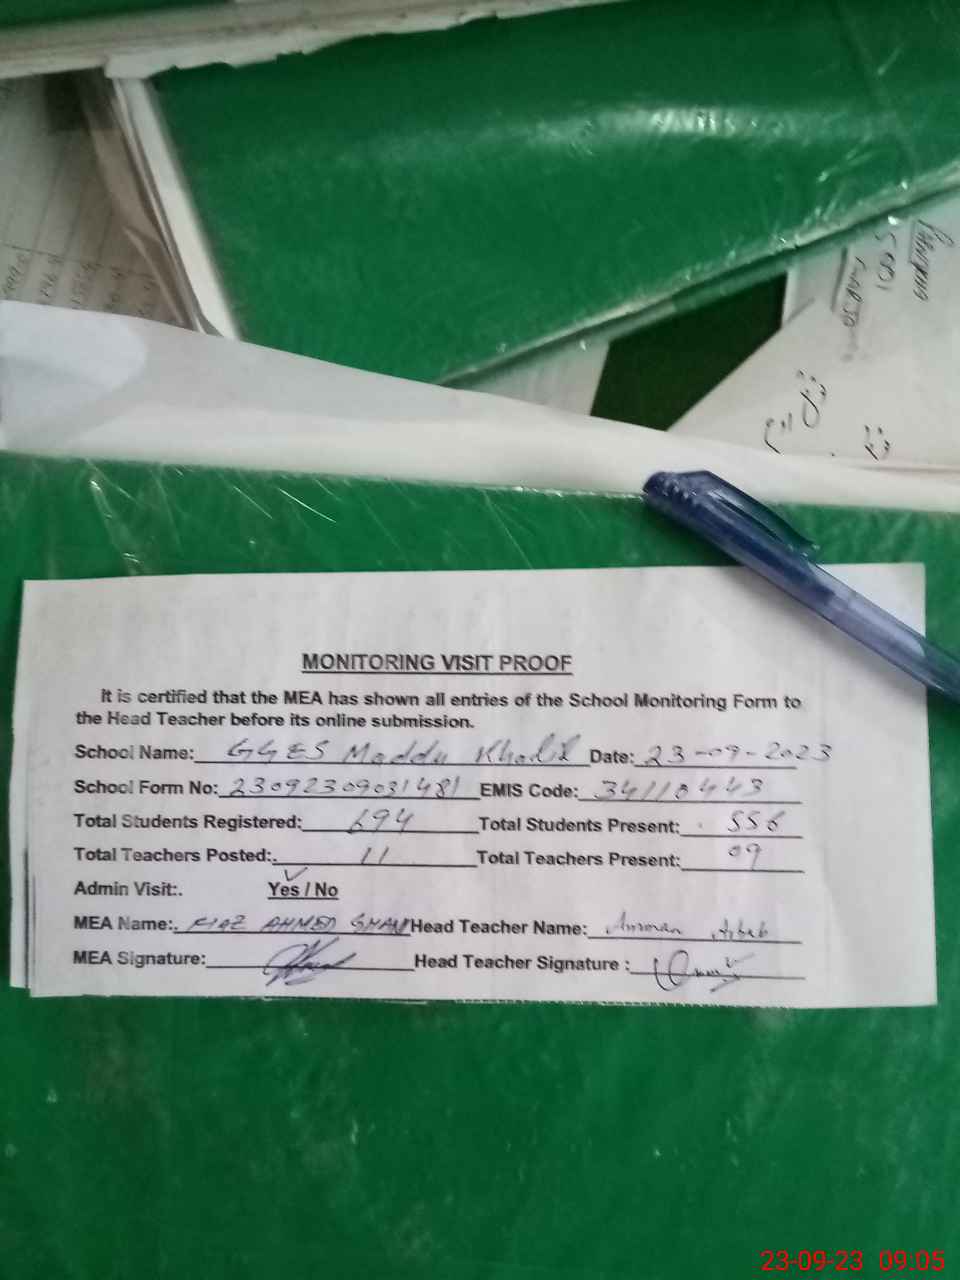 5001
MONITORING VISIT PROOF
It is certified that the MEA has shown all entries of the School Monitoring Form to
the Head Teacher before its online submission.
School Name: GGES Maddu Khalil Date: 23-09-2023
School Form No: 23092309031481 EMIS Code: 34110443
Total Students Registered: 694 Total Students Present: 556
Total Teachers Posted: 11 Total Teachers Present: 09
Admin Visit:. Yes / No
MEA Name: AHMED SHAH Head Teacher Name: Amman Arbab
MEA Signature: Head Teacher Signature :
23-09-23 09:05